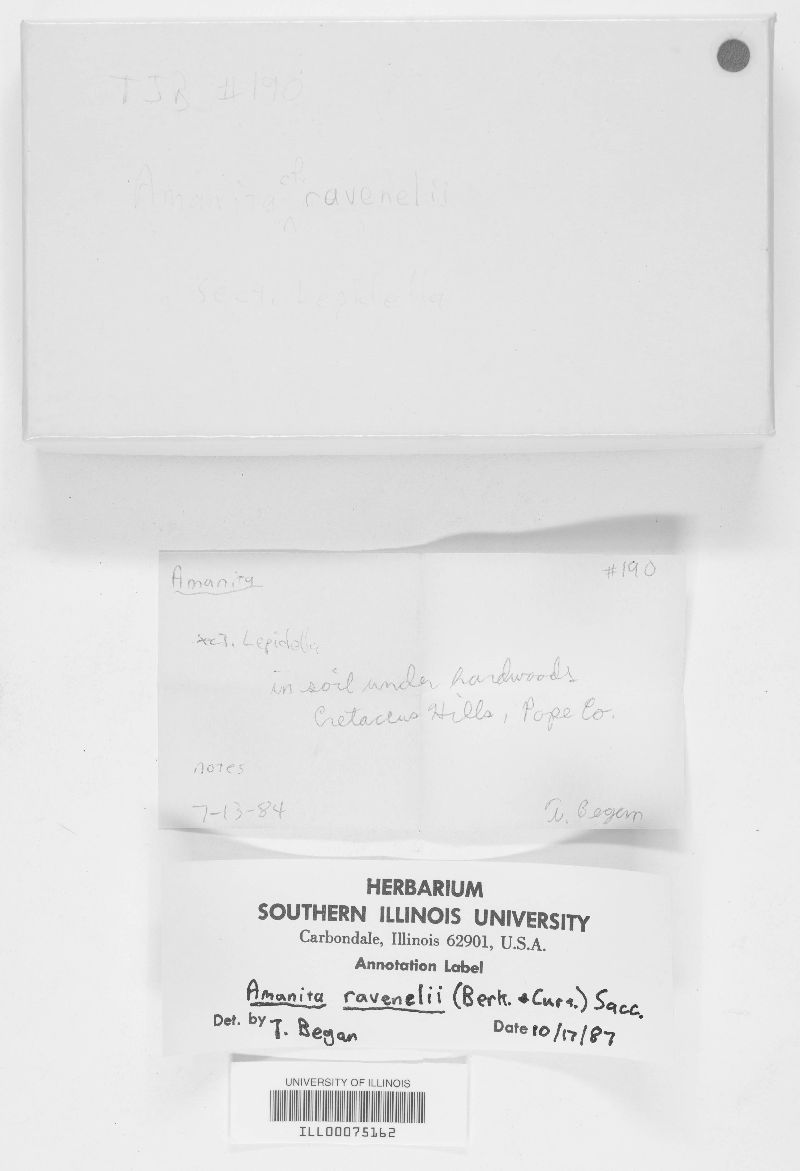 TJB #190
cf.
Amanita ^ ravenelii
sect. Lepidella
Amanita #190
sect. Lepidella
in soil under hardwoods
Cretaceus Hills, Pope Co.
notes
7-13-84 T. Began
HERBARIUM
SOUTHERN ILLINOIS UNIVERSITY
Carbondale, Illinois 62901, U.S.A.
Annotation Label
Amanita ravenelii (Berk. & Curt.) Sacc.
Det. by T. Began Date 10/17/87
UNIVERSITY OF ILLINOIS
ILL00075162